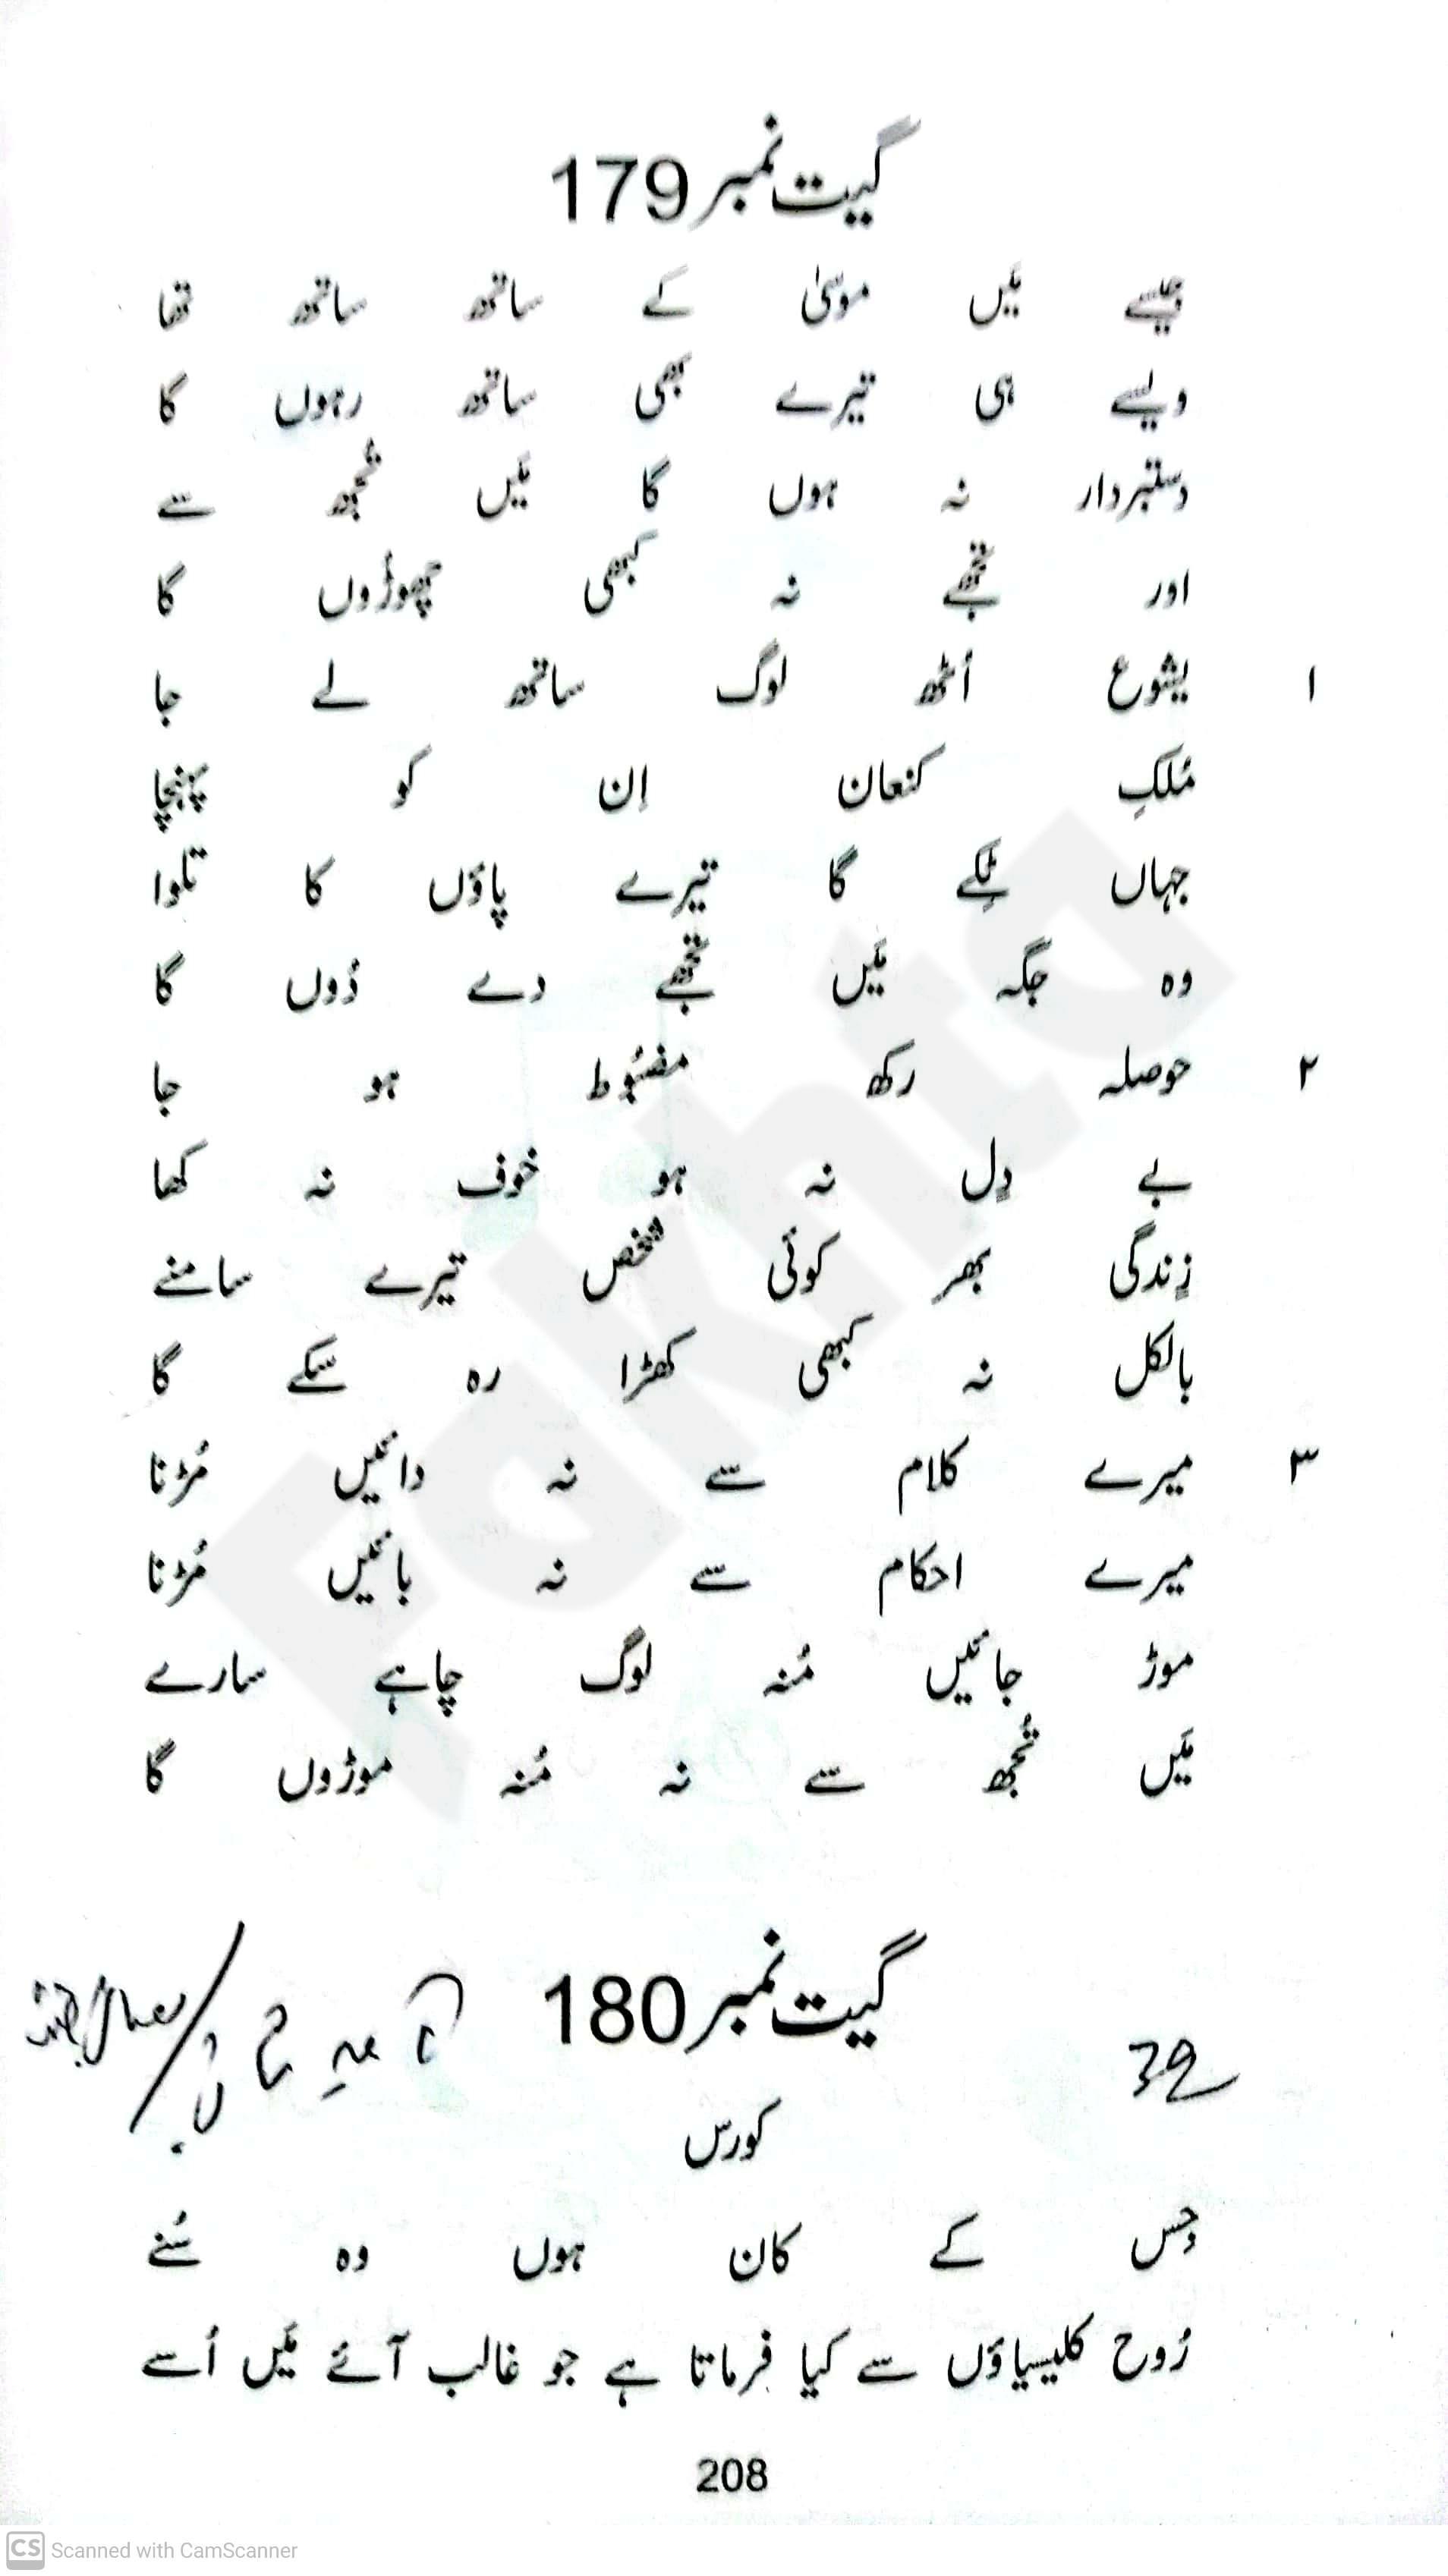 گیت نمبر 179
جیسے مَیں موسیٰ کے ساتھ ساتھ تھا
ویسے ہی تیرے بھی ساتھ رہوں گا
دستبردار نہ ہوں گا مَیں تُجھ سے
اور تجھے نہ کبھی چھوڑوں گا
۱ یشوع اُٹھ لوگ ساتھ لے جا
مُلکِ کنعان اِن کو پہنچا
جہاں ٹِکے گا تیرے پاؤں کا تلوا
وہ جگہ مَیں تجھے دے دُوں گا
۲ حوصلہ رکھ مضبُوط ہو جا
بے دِل نہ ہو خوف نہ کھا
زِندگی بھر کوئی شخص تیرے سامنے
بالکل نہ کبھی کھڑا رہ سکے گا
۳ میرے کلام سے نہ دائیں مُڑنا
میرے احکام سے نہ بائیں مُڑنا
موڑ جائیں مُنہ لوگ چاہے سارے
مَیں تُجھ سے نہ مُنہ موڑوں گا
گیت نمبر 180
39
کورس
جِس کے کان ہوں وہ سُنے
رُوح کلیسیاؤں سے کیا فرماتا ہے جو غالب آئے مَیں اُسے
208
CS Scanned with CamScanner
Fakhta